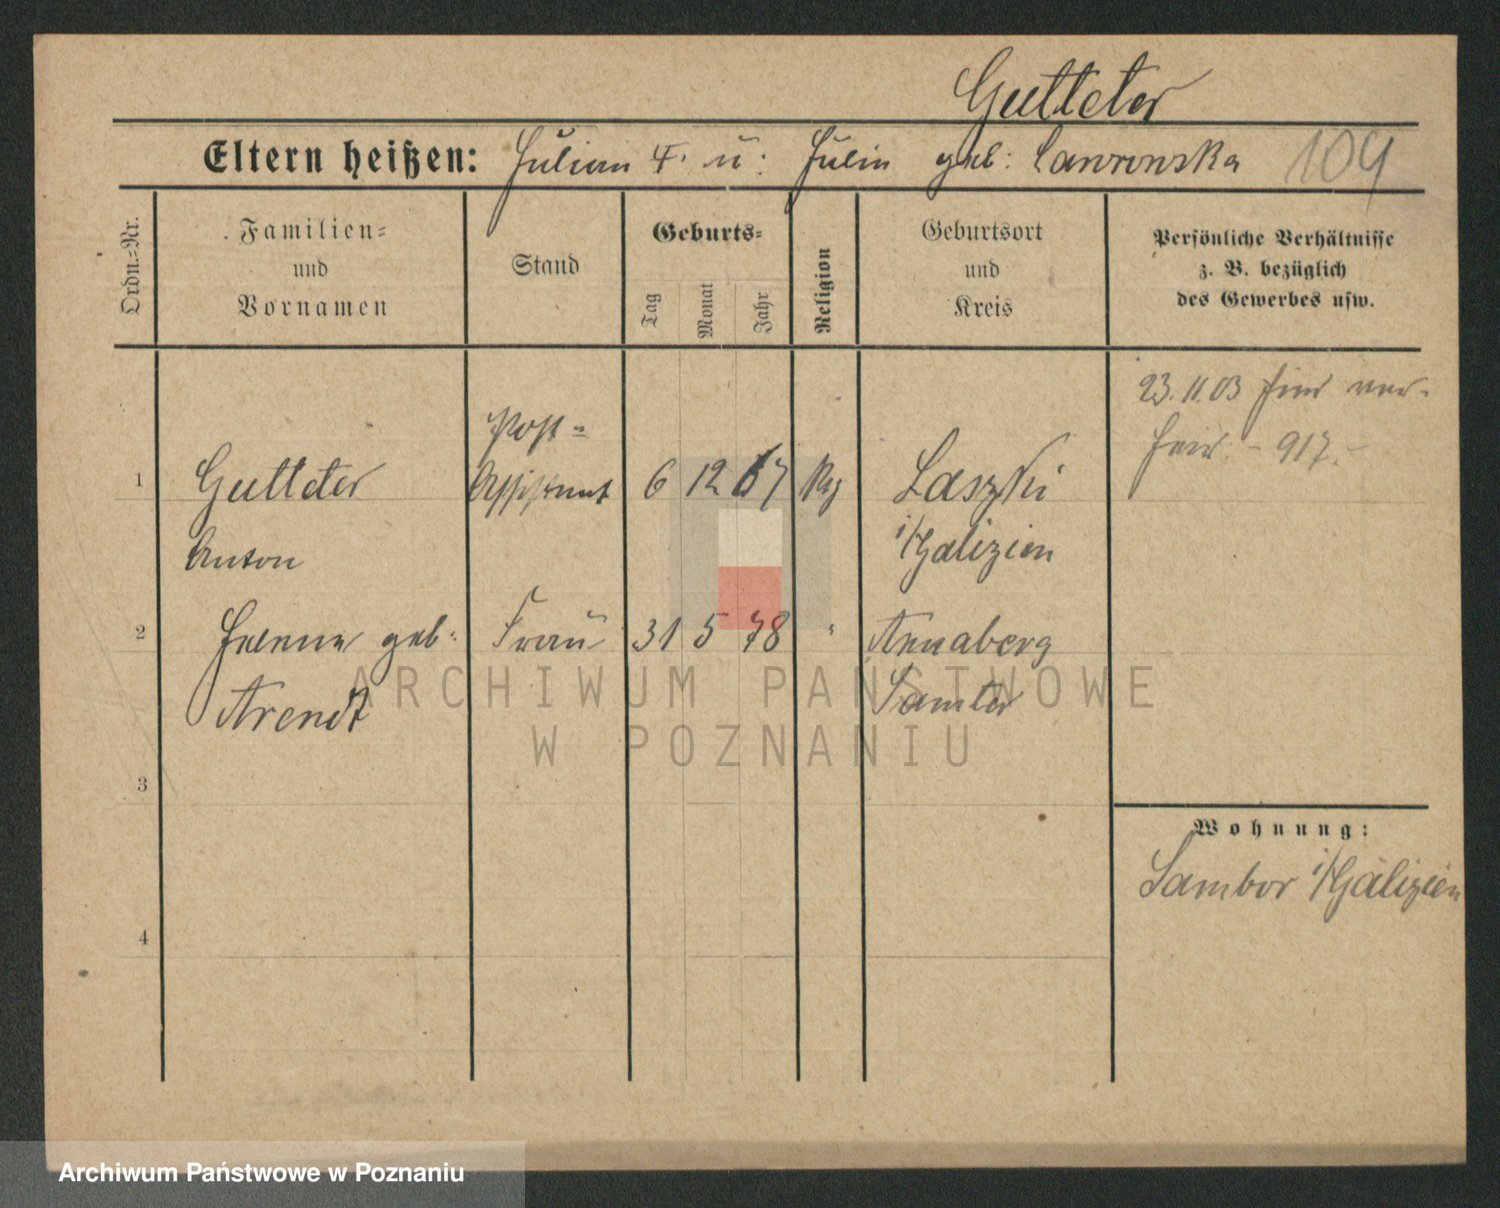 Gutteter
Eltern heißen: Julian F. u: Julia geb: Lawronska 109
Ordn.-Nr.
Familien-
und
Vornamen
Stand
Geburts-
Tag
Monat
Jahr
Religion
Geburtsort
und
Kreis
Persönliche Verhältnisse
z. B. bezüglich
des Gewerbes usw.
23.11.03 hier ver-
heir. - 917.-
1 Gutteter Post=
Assistent 6 12 67 Laszki
Anton i/Galizien
2 Helene geb: Frau 31 5 78 " Annaberg
Arendt Samter
3
4
Wohnung:
Sambor i/Galizien
ARCHIWUM PAŃSTWOWE
W POZNANIU
Archiwum Państwowe w Poznaniu